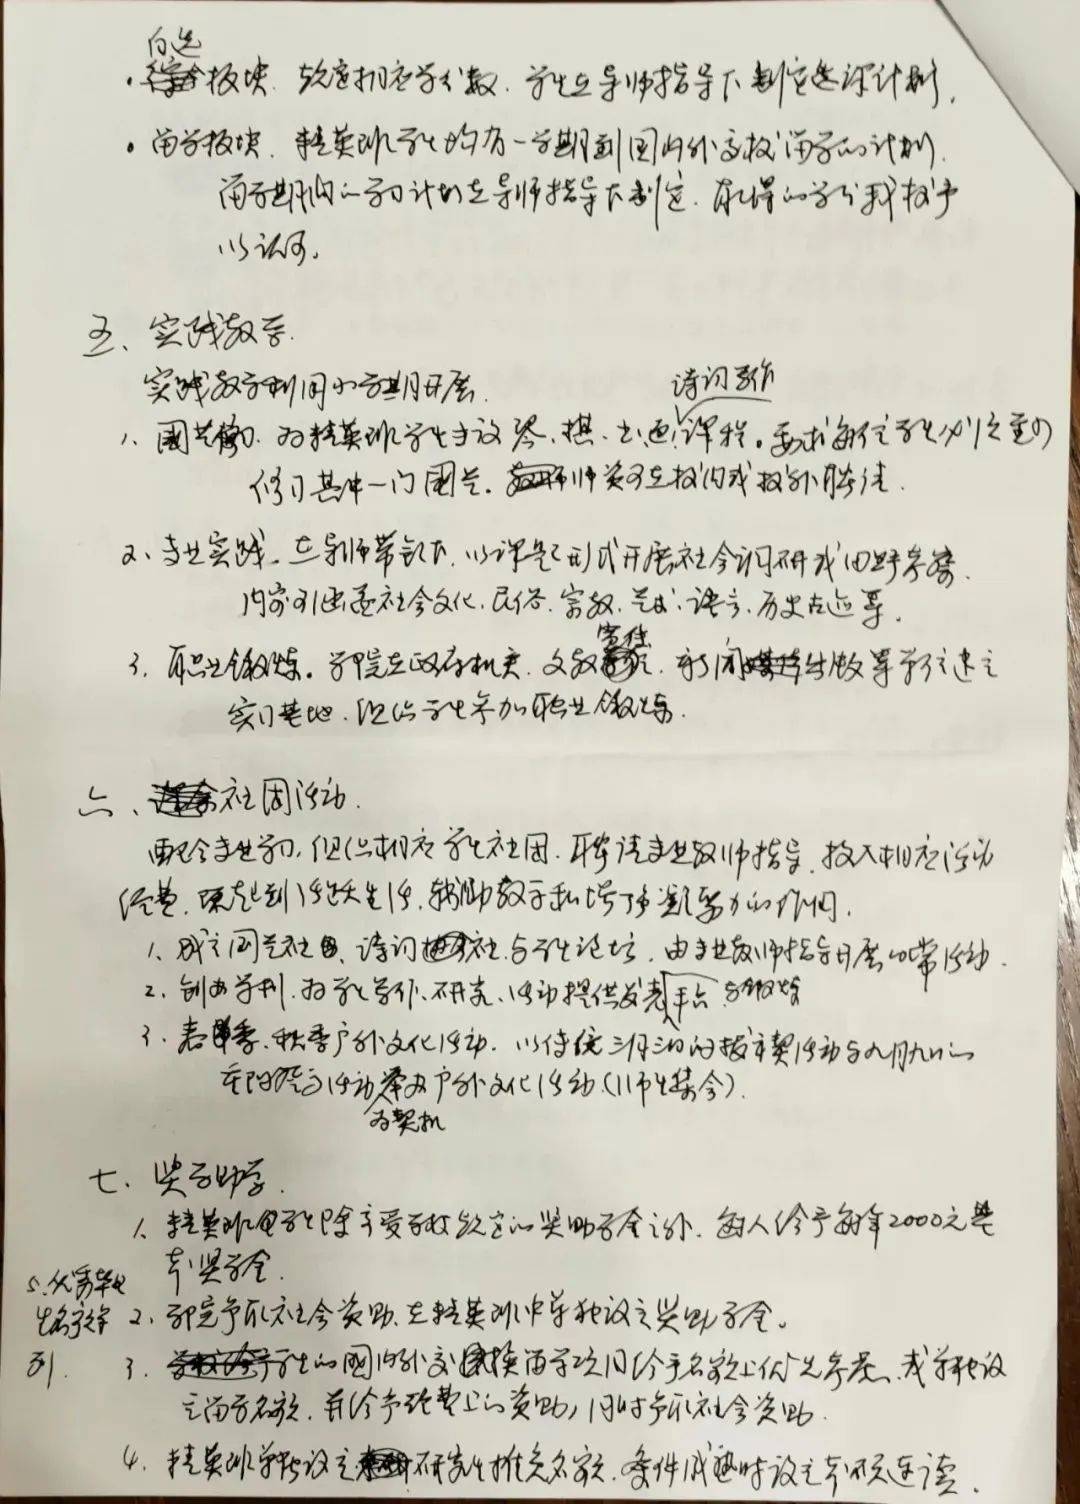 自选
·板块. 规定相应学分数. 学生在导师指导下制定选课计划.
·留学板块. 精英班学生均有一学期到国内外高校留学的计划.
留学期间的学习计划在导师指导下制定. 取得的学分我校予
以认可.
五、实践教学.
实践教学利用小学期开展.
诗词写作
1. 国艺修习. 为精英班学生开设琴、棋、书、画、课程。要求每位学生必须至少
修习其中一门国艺. 师资可在校内或校外聘请.
2. 专业实践. 在导师带领下. 以课题形式开展社会调研或田野考察.
内容可涵盖社会文化、民俗、宗教、艺术、语言、历史古迹等.
宣传
3. 职业锻炼。学院在政府机关、文教、新闻出版等单位建立
实习基地. 组织学生参加职业锻炼.
六、社团活动.
配合专业学习, 组织相应学生社团. 聘请专业教师指导. 投入相应活动
经费. 起到活跃生活、辅助教学和培养能力的作用.
1. 成立国艺社、诗词社、与学生论坛. 由专业教师指导开展日常活动.
2. 创办学刊. 为学生写作、研究、活动提供发表平台与锻炼
3. 春季、秋季户外文化活动. 以传统三月三的祓禊活动与九月九的
重阳登高活动举办户外文化活动(师生集会).
为契机
七、奖学助学.
1. 精英班学生除享受学校规定的奖助学金之外. 每人给予每年2000元基
本奖学金.
2. 学院争取社会资助. 在精英班中单独设立奖助学金.
3. 学生的国内外交换留学项目给予名额上优先考虑. 或单独设
立留学名额. 并给予经费上的资助, 同时争取社会资助.
4. 精英班单独设立研究生推免名额. 条件成熟时设立本硕连读.
5. 优秀毕业
生名字
列.